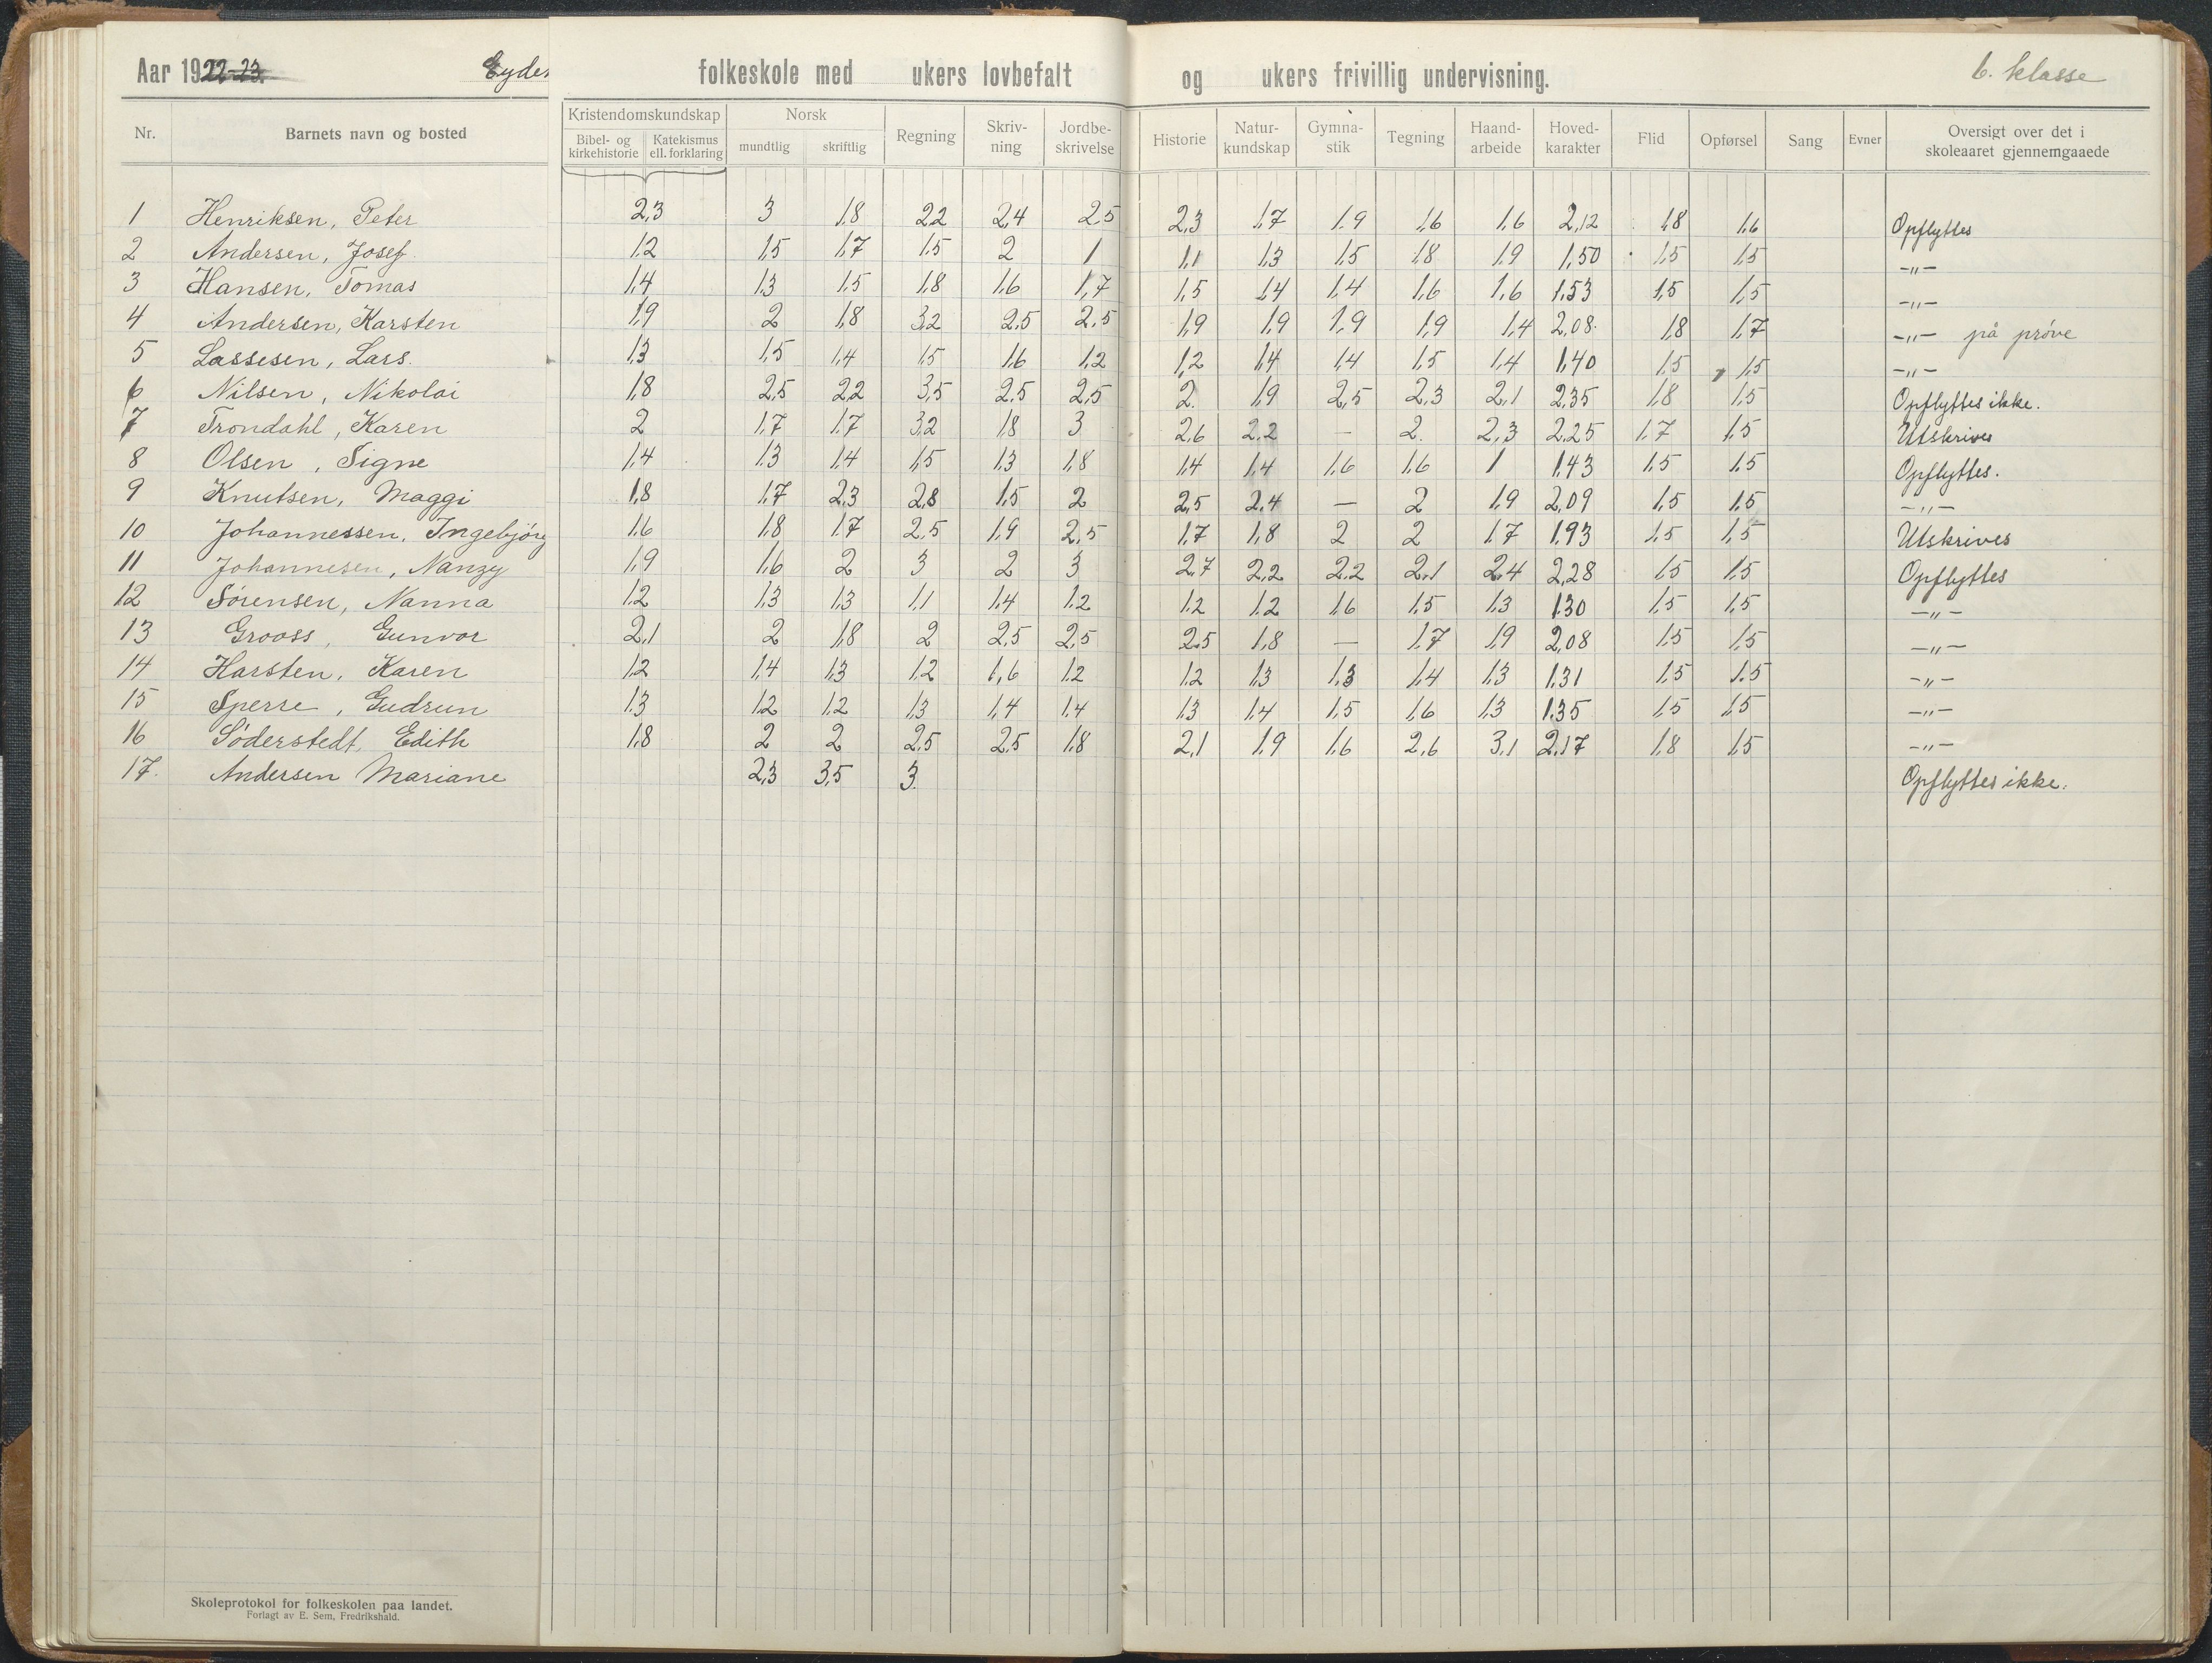 Aar 1922-23. Eydes folkeskole med ukers lovbefalt og ukers frivillig undervisning. 6. klasse
Nr. Barnets navn og bosted Kristendomskundskap Bibel- og kirkehistorie Katekismus ell. forklaring Norsk mundtlig skriftlig Regning Skriv-ning Jordbe-skrivelse Historie Natur-kundskap Gymna-stik Tegning Haand-arbeide Hoved-karakter Flid Opførsel Sang Evner Oversigt over det i skoleaaret gjennemgaaede
1 Henriksen, Peter 2,3 3 1,8 2,2 2,4 2,5 2,3 1,7 1,9 1,6 1,6 2,12 1,8 1,6 Opflyttes
2 Andersen, Josef. 1,2 1,5 1,7 1,5 2 1 1,1 1,3 1,5 1,8 1,9 1,50 1,5 1,5 -"-
3 Hansen, Tomas 1,4 1,3 1,5 1,8 1,6 1,7 1,5 1,4 1,4 1,6 1,6 1,53 1,5 1,5 -"-
4 Andersen, Karsten 1,9 2 1,8 3,2 2,5 2,5 1,9 1,9 1,9 1,9 1,4 2,08. 1,8 1,7 -"- på prøve
5 Lassesen, Lars. 1,3 1,5 1,4 1,5 1,6 1,2 1,2 1,4 1,4 1,5 1,4 1,40 1,5 1,5 -"-
6 Nilsen, Nikolai 1,8 2,5 2,2 3,5 2,5 2,5 2. 1,9 2,5 2,3 2,1 2,35 1,8 1,5 Opflyttes ikke.
7 Trondahl, Karen 2 1,7 1,7 3,2 1,8 3 2,6 2,2 — 2. 2,3 2,25 1,7 1,5 Utskrives
8 Olsen, Signe 1,4 1,3 1,4 1,5 1,3 1,8 1,4 1,4 1,6 1,6 1 1,43 1,5 1,5 Opflyttes.
9 Knutsen, Maggi 1,8 1,7 2,3 2,8 1,5 2 2,5 2,4 — 2 1,9 2,09 1,5 1,5 -"-
10 Johannessen, Ingebjørg 1,6 1,8 1,7 2,5 1,9 2,5 1,7 1,8 2 2 1,7 1,93 1,5 1,5 Utskrives
11 Johannesen, Nanzy 1,9 1,6 2 3 2 3 2,7 2,2 2,2 2,1 2,4 2,28 1,5 1,5 Opflyttes
12 Sørensen, Nanna 1,2 1,3 1,3 1,1 1,4 1,2 1,2 1,2 1,6 1,5 1,3 1,30 1,5 1,5 -"-
13 Grooss, Gunvor 2,1 2 1,8 2 2,5 2,5 2,5 1,8 — 1,7 1,9 2,08 1,5 1,5 -"-
14 Harsten, Karen 1,2 1,4 1,3 1,2 1,6 1,2 1,2 1,3 1,3 1,4 1,3 1,31 1,5 1,5 -"-
15 Sperre, Gudrun 1,3 1,2 1,2 1,3 1,4 1,4 1,3 1,4 1,5 1,6 1,3 1,35 1,5 1,5 -"-
16 Söderstedt, Edith 1,8 2 2 2,5 2,5 1,8 2,1 1,9 1,6 2,6 3,1 2,17 1,8 1,5 -"-
17. Andersen Mariane 2,3 3,5 3. Opflyttes ikke.
Skoleprotokol for folkeskolen paa landet.
Forlagt av E. Sem, Fredrikshald.